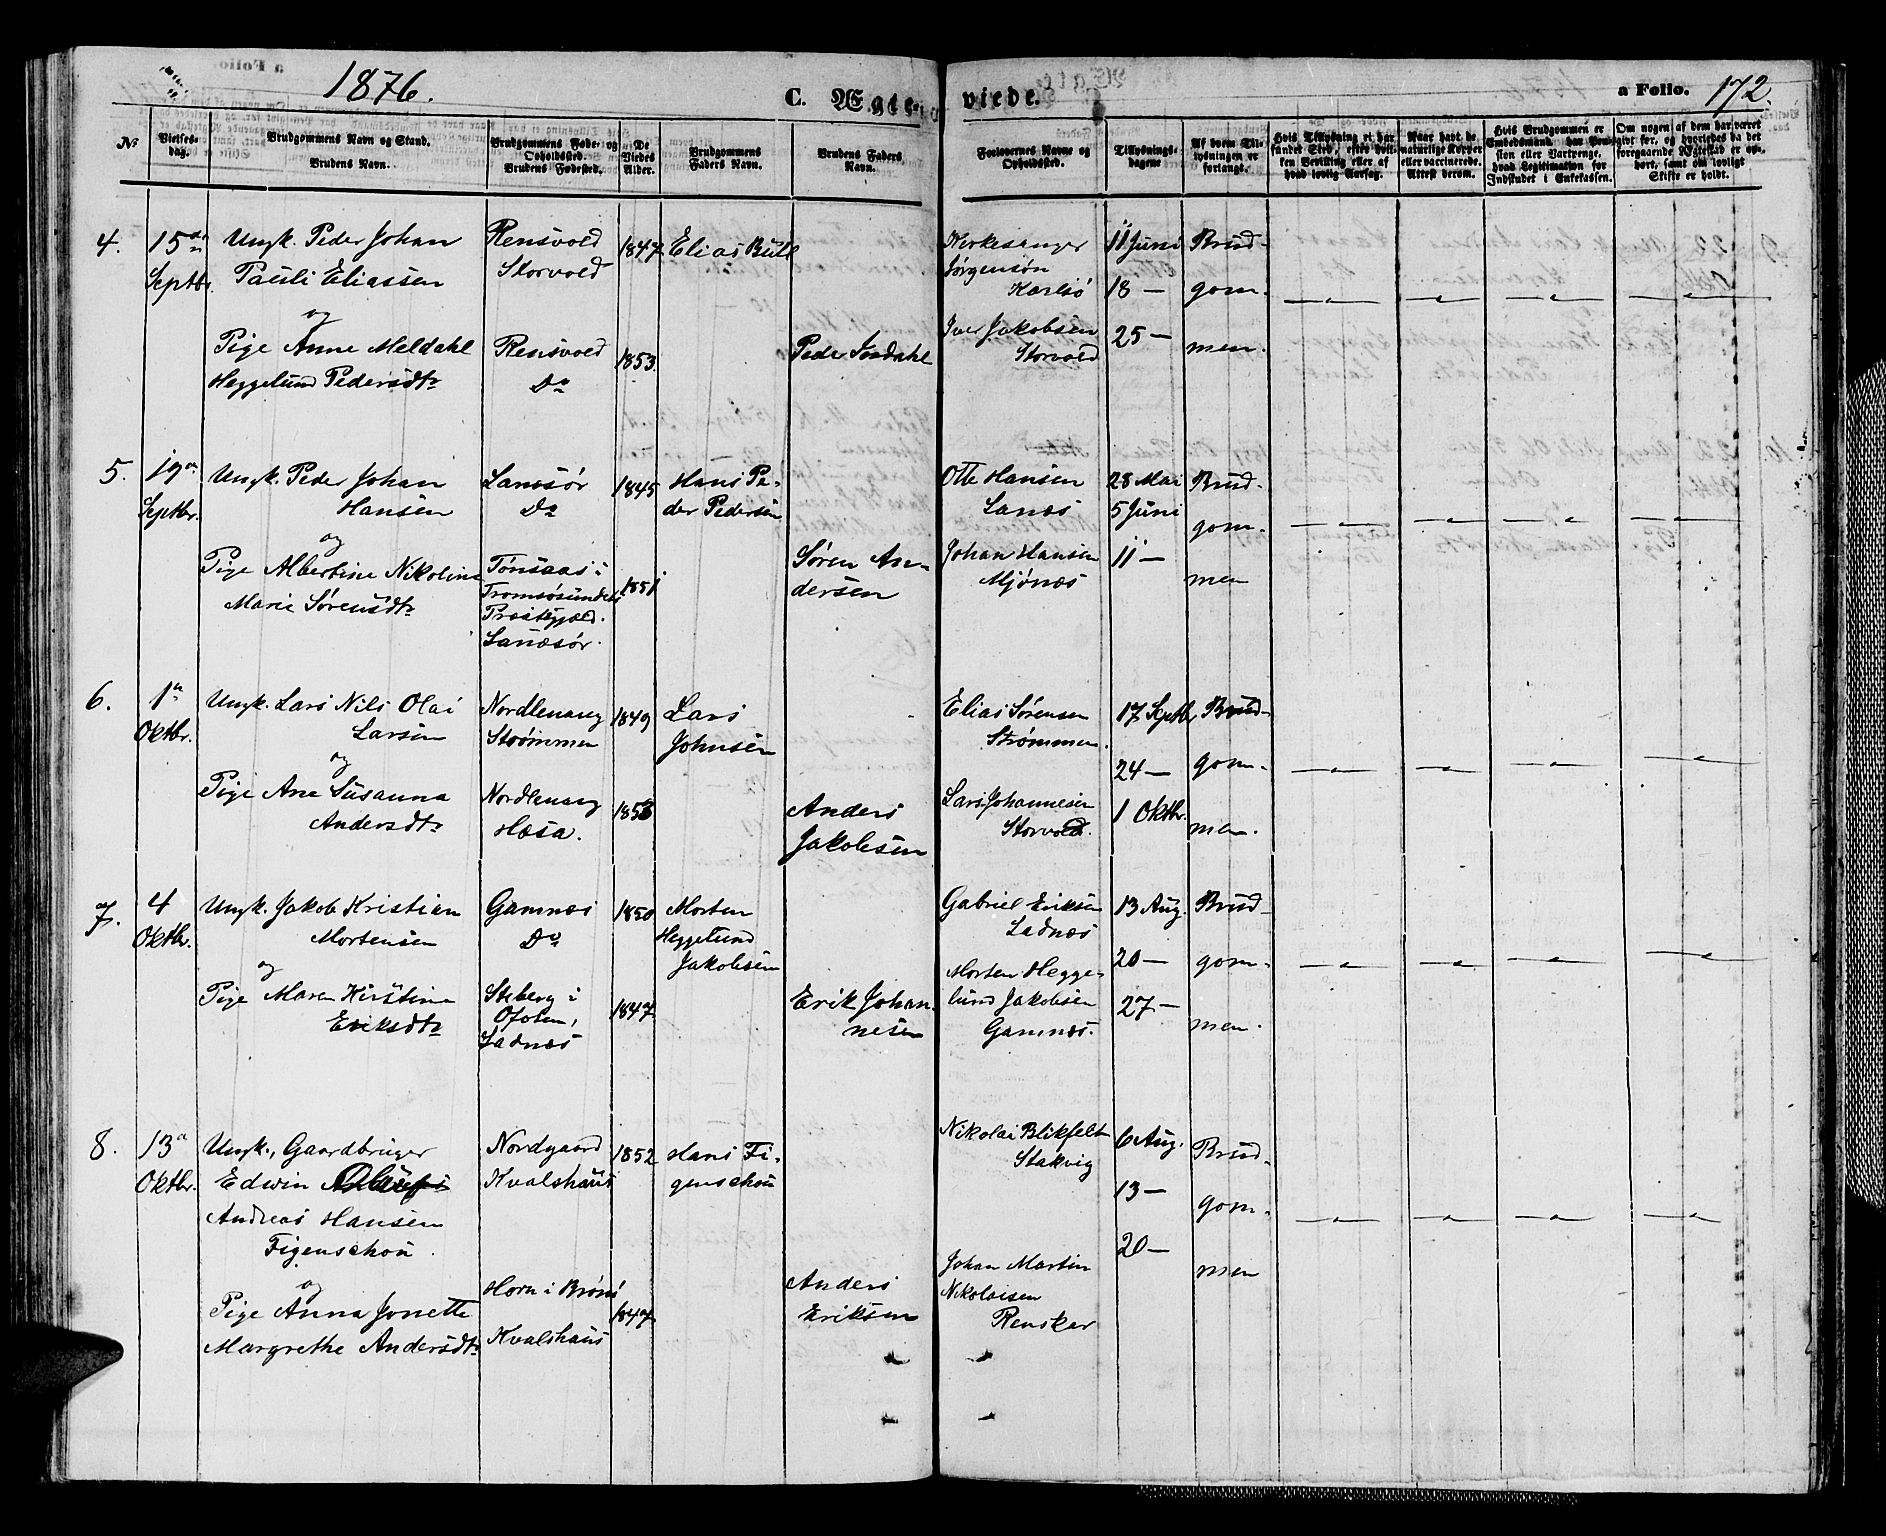 1876.
C. Ægteviede.
a Folio. 172.
No
Vielses-dag.
Brudgommens Navn og Stand.
Brudens Navn.
Brudgommens Føde- og Opholdssted.
Brudens Fødested.
De Viedes Alder.
Brudgommens Faders Navn.
Brudens Faders Navn.
Forlovernes Navne og Opholdssted.
Tillysnings-dagene
Af hvem Tillysningen er forlangt.
Hvis Tillysning ei har fundet Sted, efter hvilken Bevilling eller af hvad lovlig Aarsag.
Naar havt de naturlige Kopper eller vaccinerede. Attest derom.
Hvis Brudgommen er Embedsmand, har Pension eller Vartpenge, hvad Legitimation for Indskudet i Enkekassen.
Om nogen af dem har været givt før, og hvorledes da det foregaaende Ægteskab er ophørt, samt om lovligt Skifte er holdt.
4. 15de Septbr.
Ungk. Peder Johan
Pauli Eliassen
og
Pige Anne Meldahl
Heggelund Pedersdtr
Rensvold
Storvold
Rensvold
Do
1847.
1853.
Elias Bull
Peder Jordahl
Kirkesanger
Jørgensøn
Karlsø
Iver Jakobsen
Storvold
11 Juni
18 —
25 —
Brud-
gom-
men.
5. 19de Septbr.
Ungk. Peder Johan
Hansen
og
Pige Albertine Nikoline
Marie Sørensdtr
Lanesør
Do
Tønsaas i
Tromsøsundets
Præstegjæld.
Lanesør.
1845
1851
Hans Pe-
der Pedersen
Søren An-
dersen
Otte Hansen
Lanes
Johan Hansen
Mjönæs
28 Mai
5 Juni
11 —
Brud-
gom-
men
6. 1ste Oktbr.
Ungk. Lars Nils Olai
Larsen
og
Pige Ane Susanna
Andersdtr
Nordlenang
Strømmen
Nordlenang
Hæsa.
1849
1853
Lars
Johnsen
Anders
Jakobsen
Elias Sørensen
Strømmen.
Lars Johannesen
Storvold.
17 Septbr
24 —
1 Oktbr.
Brud-
gom-
men.
7. 4 Oktbr.
Ungk. Jakob Kristian
Mortensen
og
Pige Maren Kirstine
Eriksdtr
Gamnæs
Do
Steberg i
Ofoten,
Ladnæs
1850
1847
Morten
Heggelund
Jakobsen
Erik Johan-
nesen
Gabriel Eriksen
Ladnæs
Morten Hegge-
lund Jakobsen
Gamnæs.
13 Aug.
20 —
27 —
Brud-
gom-
men.
8. 13de Oktbr.
Ungk., Gaardbruger
Edwin
Andreas Hansen
Figenschou.
og
Pige Anna Jonette
Margrethe Andersdtr
Nordgaard
Kvalshaus
Horn i Brønø
Kvalshaus
1852
1847
Hans Fi-
genschou
Anders
Eriksen
Nikolai Blikfelt
Stakvig
Johan Martin
Nikolaisen
Renskar
6 Aug.
13 —
20 —
Brud-
gom-
men